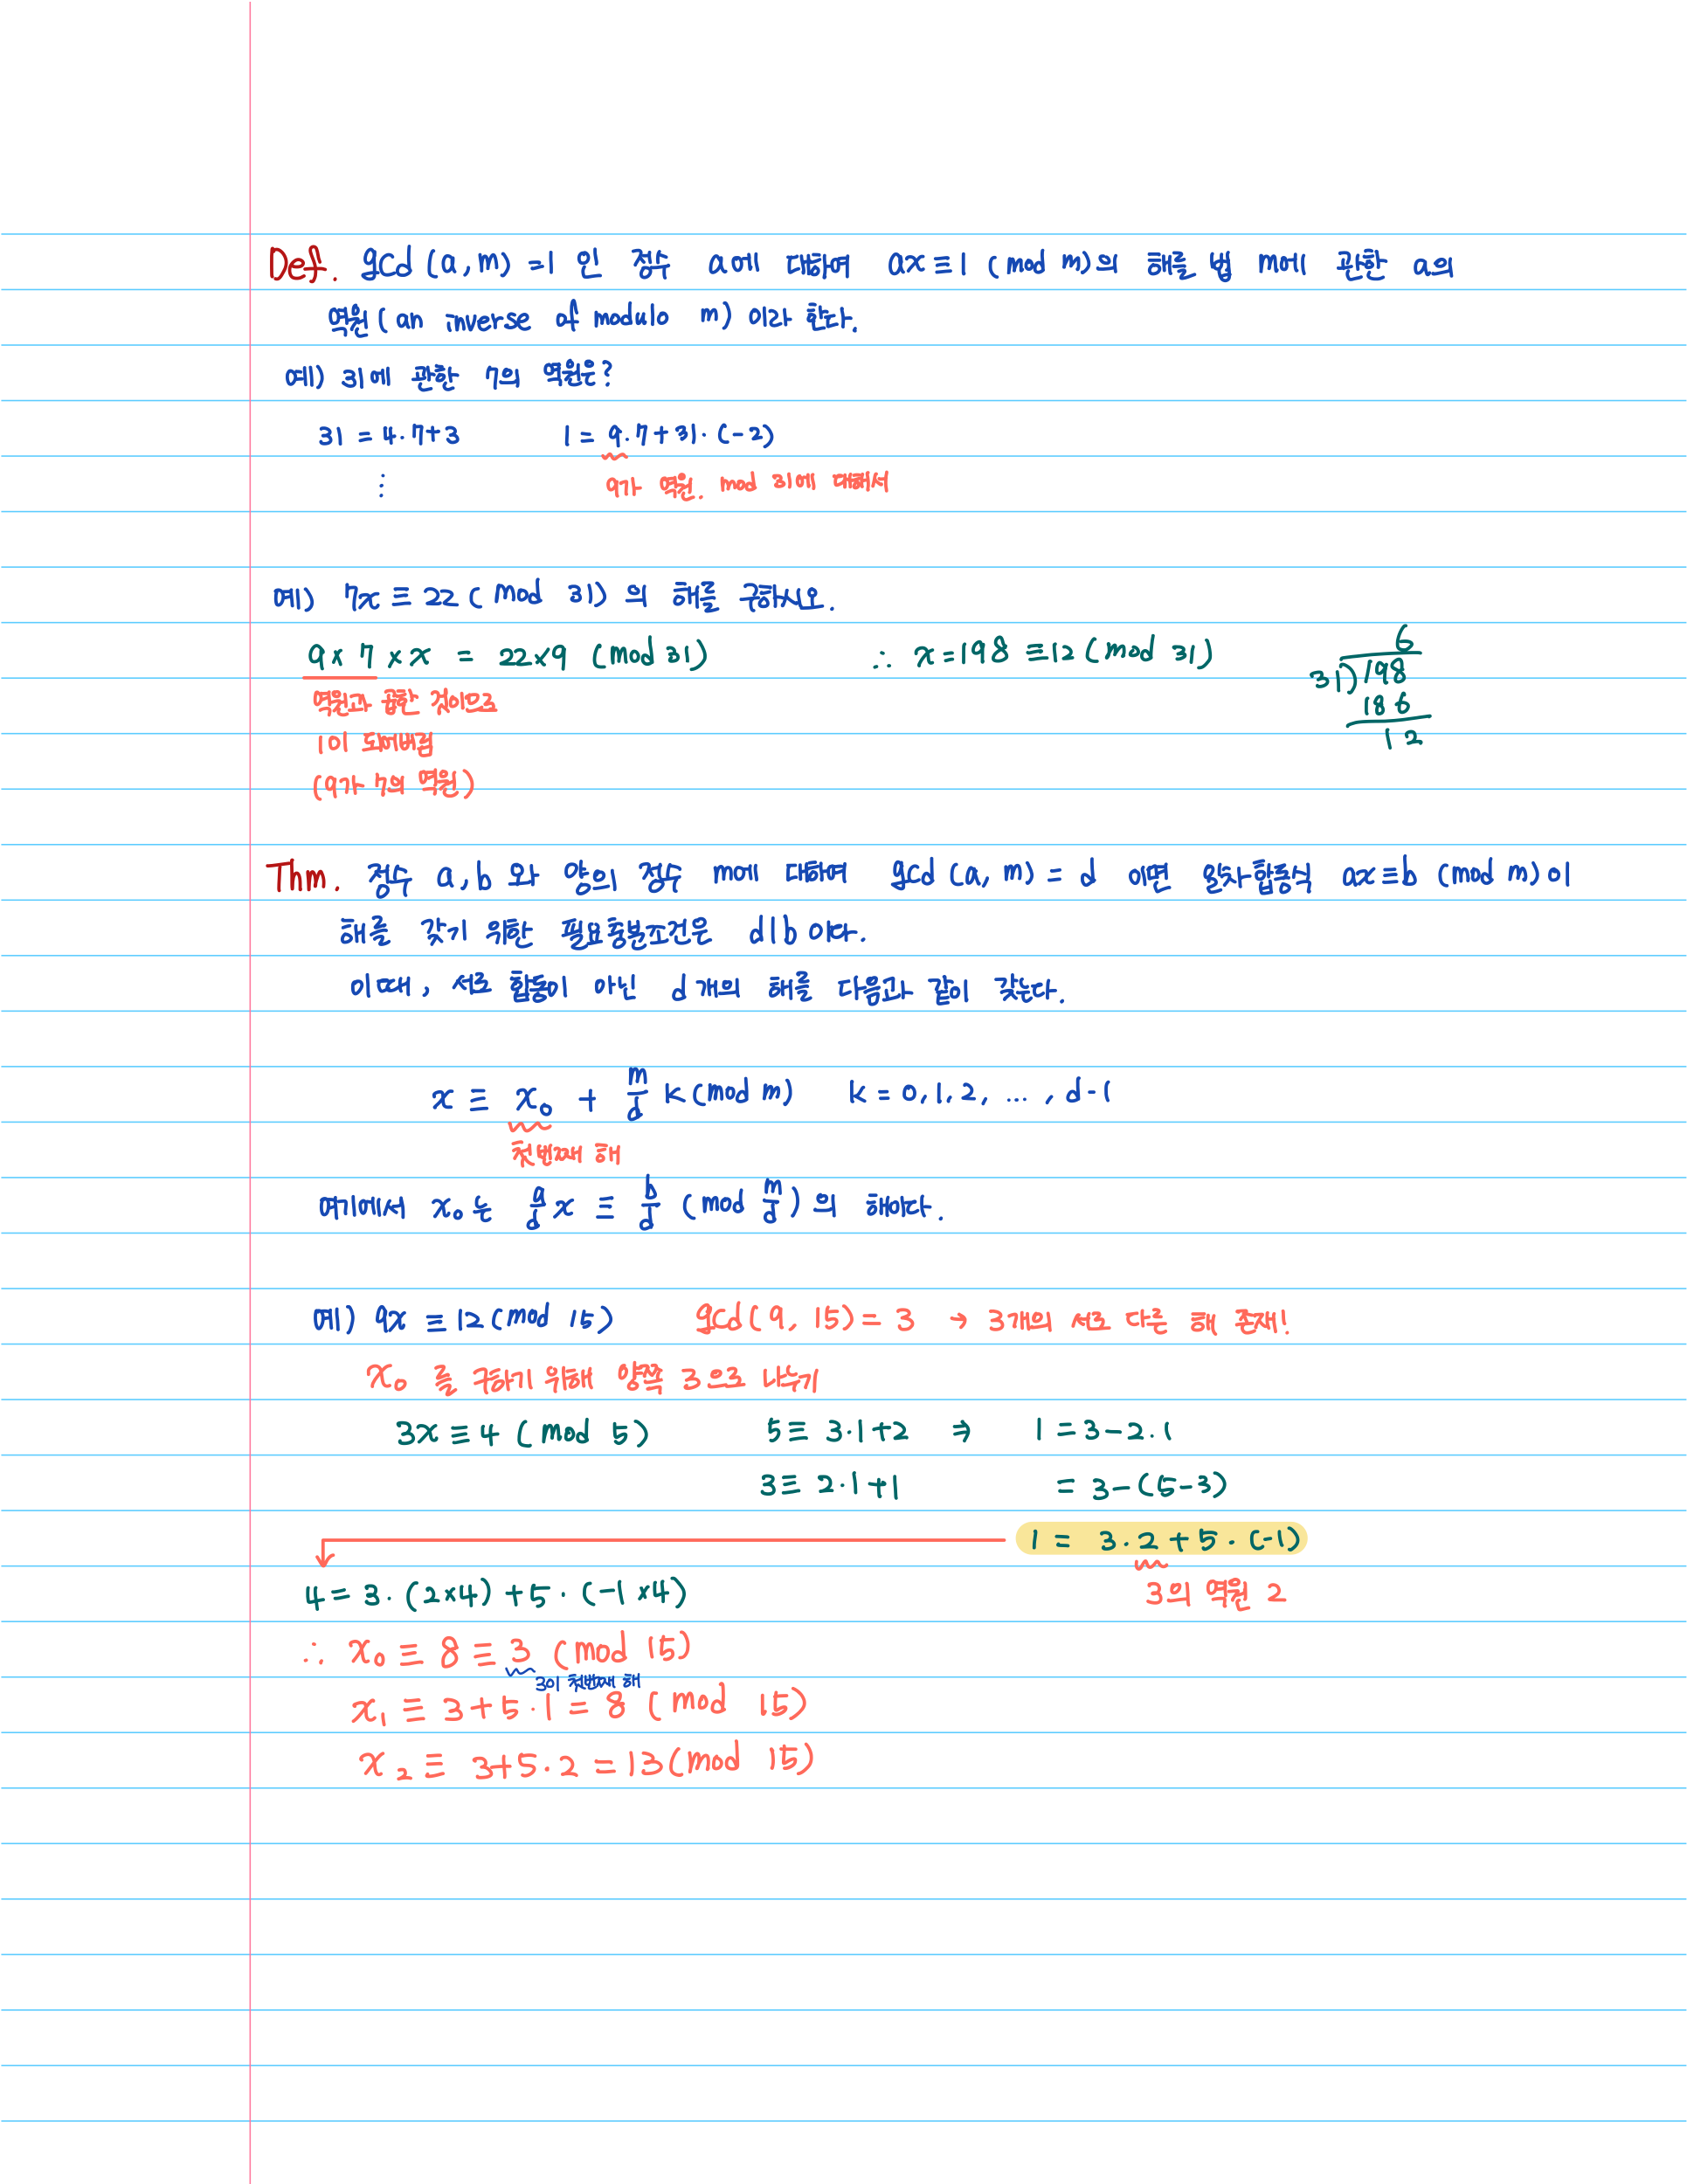 Def. gcd (a, m) = 1 인 정수 a에 대하여 ax ≡ 1 (mod m)의 해를 법 m에 관한 a의
역원 (an inverse of modulo m) 이라 한다.
예) 31에 관한 7의 역원은?
31 = 4·7+3 1 = 9·7+31·(-2)
⋮ 9가 역원. mod 31에 대해서
예) 7x ≡ 22 (mod 31) 의 해를 구하시오.
9 × 7 × x = 22×9 (mod 31) ∴ x = 198 ≡ 12 (mod 31)
6
31)198
186
12
역원과 곱한 것이므로
1이 되어버림
(9가 7의 역원)
Thm. 정수 a, b 와 양의 정수 m에 대하여 gcd (a, m) = d 이면 일차합동식 ax ≡ b (mod m) 이
해를 갖기 위한 필요충분조건은 d|b 이다.
이때, 서로 합동이 아닌 d개의 해를 다음과 같이 갖는다.
x ≡ x₀ + m/d k (mod m) k = 0, 1, 2, ..., d-1
첫번째 해
여기에서 x₀는 a/d x ≡ b/d (mod m/d) 의 해이다.
예) 9x ≡ 12 (mod 15) gcd (9, 15) = 3 → 3개의 서로 다른 해 존재!
x₀ 를 구하기 위해 양쪽 3으로 나누기
3x ≡ 4 (mod 5) 5 ≡ 3·1+2 ⇒ 1 = 3-2·1
3 ≡ 2·1+1 = 3-(5-3)
1 = 3·2+5·(-1)
4 = 3·(2×4)+5·(-1×4) 3의 역원 2
∴ x₀ ≡ 8 ≡ 3 (mod 15)
3이 첫번째 해
x₁ ≡ 3+5·1 = 8 (mod 15)
x₂ ≡ 3+5·2 = 13 (mod 15)